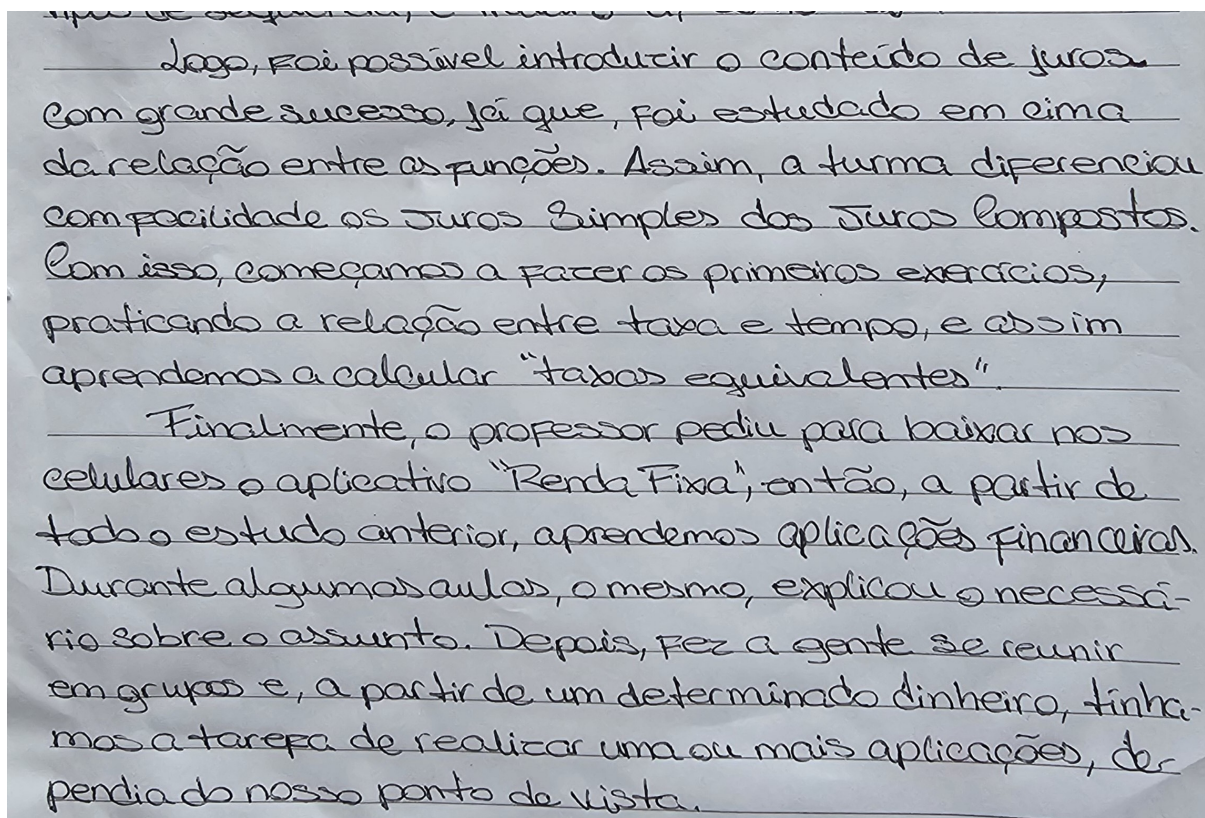 Logo, foi possível introduzir o conteúdo de juros
com grande sucesso, já que, foi estudado em cima
da relação entre as funções. Assim, a turma diferenciou
com facilidade os Juros Simples dos Juros Compostos.
Com isso, começamos a fazer os primeiros exercícios,
praticando a relação entre taxa e tempo, e assim
aprendemos a calcular "taxas equivalentes".
Finalmente, o professor pediu para baixar nos
celulares o aplicativo "Renda Fixa", então, a partir de
todo o estudo anterior, aprendemos aplicações financeiras.
Durante algumas aulas, o mesmo, explicou o necessá-
rio sobre o assunto. Depois, fez a gente se reunir
em grupos e, a partir de um determinado dinheiro, tinha-
mos a tarefa de realizar uma ou mais aplicações, de-
pendia do nosso ponto de vista.